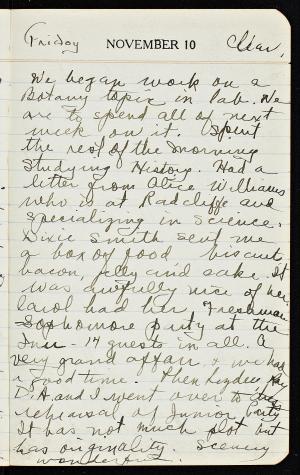 Friday NOVEMBER 10 Clear.
We began work on a
Botany topic in lab. We
are to spend all of next
week on it. Spent
the rest of the morning
studying History. Had a
letter from Alice Williams
who is at Radcliffe and
specializing in Science.
Dixie Smith sent me
a box of food biscuit
bacon, jelly and cake. It
was awfully nice of her.
Carol had her Freshman-
Sophomore party at the
Inn - 17 guests in all. A
very grand affair & we had
a good time. Then
D.A. and I went over to
rehearsal of Junior Party
It has not much plot but
has originality. Scenery
wonderful